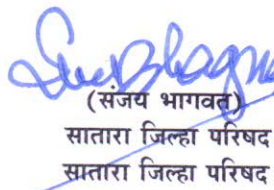 (संजय भागवत)
सातारा जिल्हा परिषद
सातारा जिल्हा परिषद